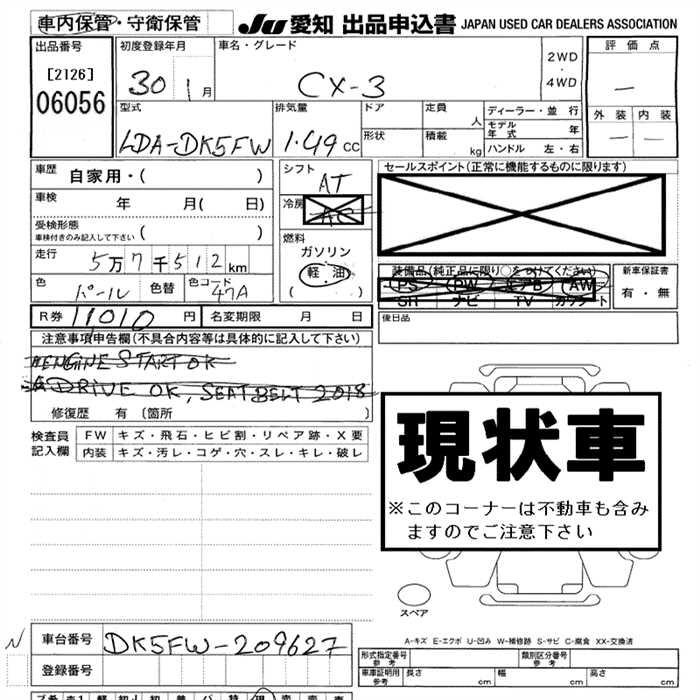 車内保管・守衛保管
JU 愛知 出品申込書 JAPAN USED CAR DEALERS ASSOCIATION
出品番号 初度登録年月 車名・グレード 2WD・4WD 評価点
[2126]
06056
30 1月 CX-3 —
外装 内装
— —
型式 排気量 ドア 定員 人 ディーラー・並行
モデル年式 年
LDA-DK5FW 1.49cc 形状 積載 kg ハンドル 左・右
車歴 自家用・( )
シフト AT
セールスポイント(正常に機能するものに限ります)
車検 年 月( 日)
冷房 AC
受検形態
車検付きのみ記入して下さい ( )
燃料
ガソリン
軽油
( )
走行 5万7千512km
装備品(純正品に限り○をつけてください)
PS PW エアB AW
SR ナビ TV カワシート
新車保証書
有・無
色 パール 色替 色コード 47A
R券 11,010円 名変期限 月 日
後日品
注意事項申告欄(不具合内容等は具体的に記入して下さい)
ENGINE START OK
DRIVE OK, SEAT BELT 2018
修復歴 有 〔箇所 〕
検査員記入欄 FW キズ・飛石・ヒビ割・リペア跡・X要
内装 キズ・汚レ・コゲ・穴・スレ・キレ・破レ
現状車
※このコーナーは不動車も含み
ますのでご注意下さい
スペア
A-キズ E-エクボ U-凹み W-補修跡 S-サビ C-腐食 XX-交換済
N 車台番号 DK5FW-209627
登録番号
形式指定番号 参考 類別区分番号 参考
車庫証明用 参考 長さ cm 幅 cm 高さ cm